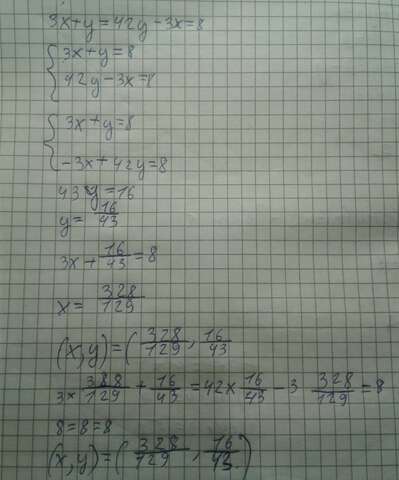 3x+y=42y-3x=8
3x+y=8
42y-3x=8
3x+y=8
-3x+42y=8
43y=16
y=16/43
3x+16/43=8
x=328/129
(x,y)=(328/129,16/43
3×388/129+16/43=42×16/43-3 328/129=8
8=8=8
(x,y)=(328/129,16/43)